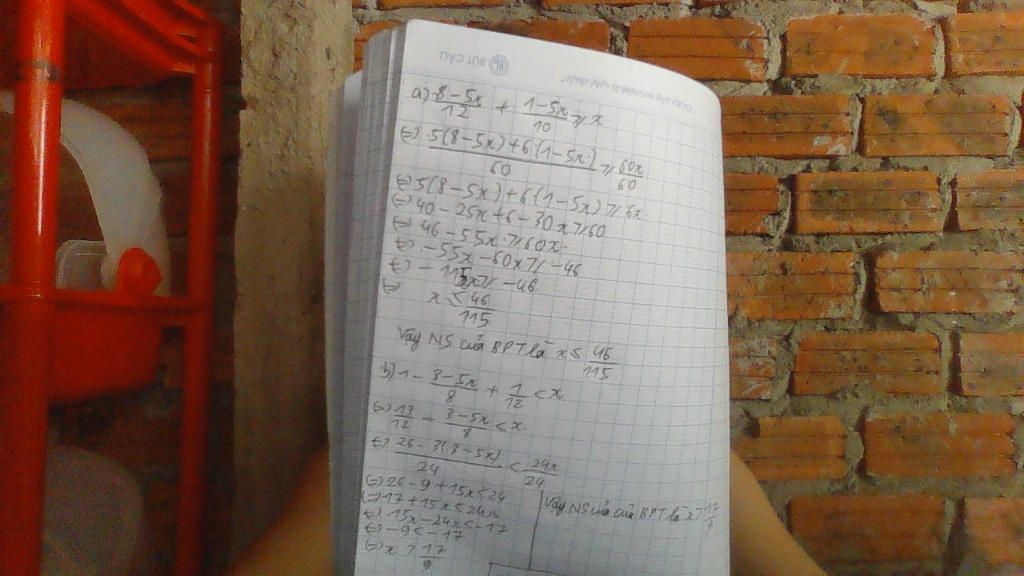 BÚT CÂU
a) \frac{8-5x}{12} + \frac{1-5x}{10} ⩾ x
(=) \frac{5(8-5x)+6(1-5x)}{60} ⩾ \frac{60x}{60}
(=) 5(8-5x)+6(1-5x) ⩾ 6x
(=) 40-25x+6-30x ⩾ 60
(=) 46-55x ⩾ 60x
(=) -55x-60x ⩾ -46
(=) -115x ⩾ -46
(=) x ≤ \frac{46}{115}
Vậy NS của BPT là x ≤ \frac{46}{115}
b) 1 - \frac{3-5x}{8} + \frac{1}{12} < x
(=) \frac{13}{12} - \frac{3-5x}{8} < x
(=) \frac{26-3(3-5x)}{24} < \frac{24x}{24}
(=) 26-9+15x < 24
(=) 17+15x < 24x
(=) 15x-24x < -17
(=) -9 < -17
(=) x > \frac{17}{9}
Vậy NS của của BPT là x > \frac{17}{9}